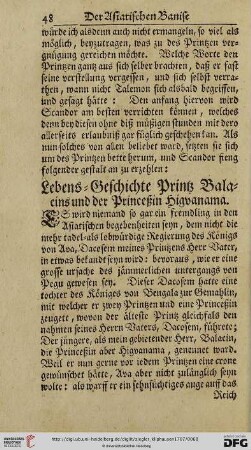 48 Der Asiatischen Banise
würde ich alsdenn auch nicht ermangeln, so viel als
möglich, beyzutragen, was zu des Printzen ver-
gnügung gereichen möchte. Welche Worte den
Printzen gantz aus sich selber brachten, daß er fast
seine verstellung vergessen, und sich selbst verra-
then, wann nicht Talemon sich alsbald begriffen,
und gesagt hätte: Den anfang hiervon wird
Scandor am besten verrichten können, welcher
denn bey diesen ohne diß müßigen stunden mit dero
allerseits erlaubniß gar füglich geschehen kan. Als
nun solches von allen beliebet ward, setzten sie sich
um des Printzen bette herum, und Scandor fieng
folgender gestalt an zu erzehlen:
Lebens-Geschichte Printz Bala-
cins und der Princeßin Higvanama.
ES wird niemand so gar ein fremdling in den
Asiatischen begebenheiten seyn, dem nicht die
mehr tadel- als lobwürdige Regierung des Königs
von Ava, Dacosem, meines Printzens Herr Vater,
in etwas bekandt seyn wird: bevoraus, wie er eine
grosse ursache des jämmerlichen untergangs von
Pegu gewesen sey. Dieser Dacosem hatte eine
tochter des Königes von Bengala zur Gemahlin,
mit welcher er zwey Printzen und eine Princeßin
zeugett, wovon der älteste Printz gleichfals den
nahmen seines Herrn Vaters, Dacosem, führete;
Der jüngere, als mein gebietender Herr, Balacin,
die Princeßin aber Higvanama, genennet ward.
Weil er nun gerne vor iedem Printzen eine crone
gewünschet hätte, Ava aber nicht zulänglich seyn
wolte: als warff er ein sehnsüchtiges auge auf das
Reich
UNIVERSITÄTS-BIBLIOTHEK HEIDELBERG
© Universitätsbibliothek Heidelberg
DFG